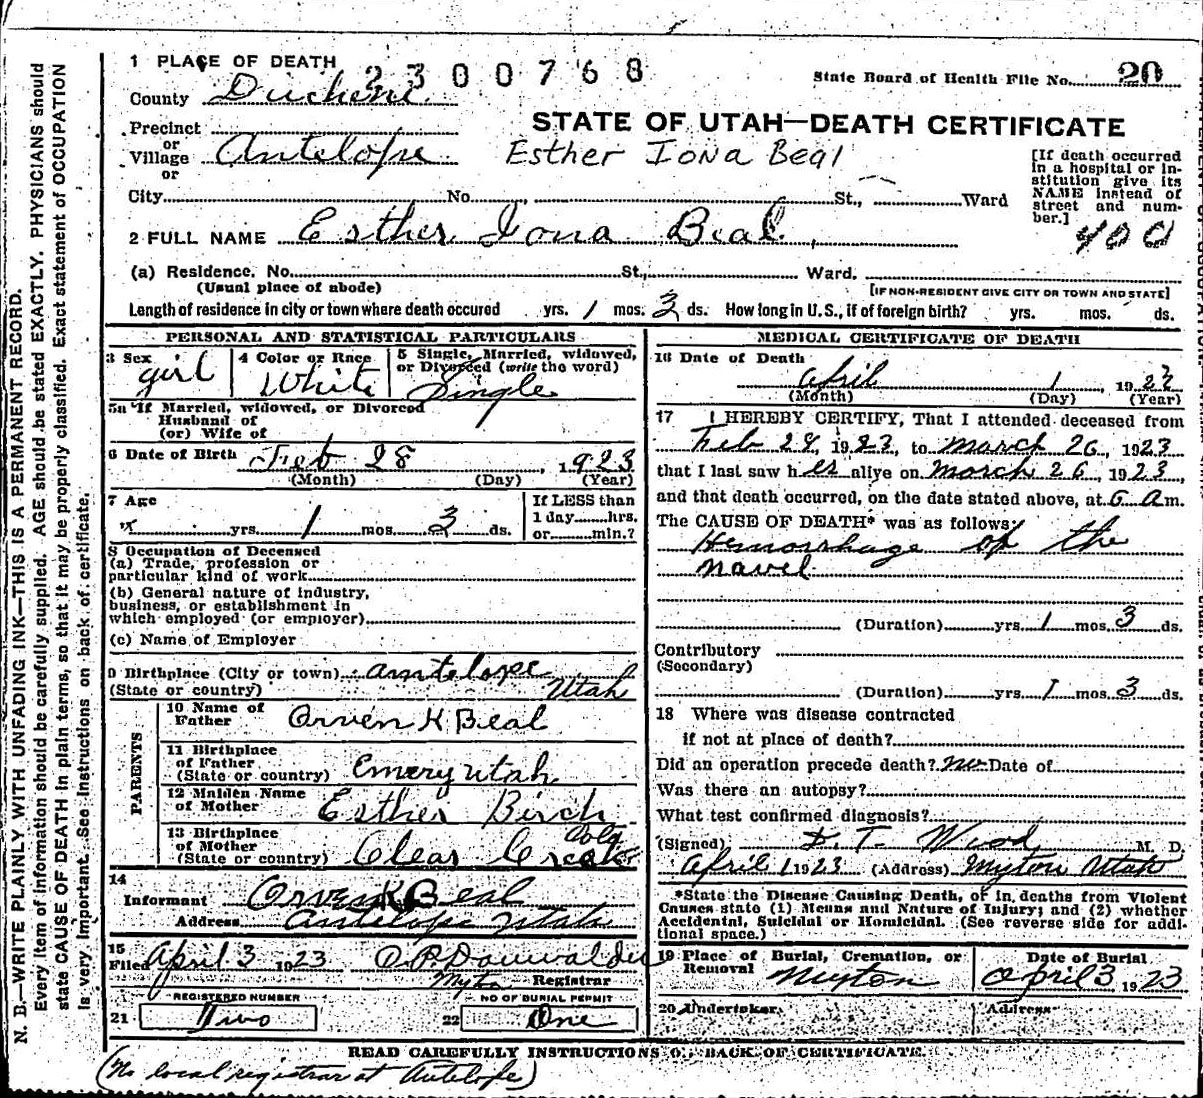 1 PLACE OF DEATH
2300768
State Board of Health File No. 20
County Duchene
STATE OF UTAH—DEATH CERTIFICATE
Precinct
or
Village Antelope
or
Esther Iona Beal
[If death occurred in a hospital or institution give its NAME instead of street and number.]
City No. St., Ward
400
2 FULL NAME Esther Iona Beal
(a) Residence. No. St., Ward.
(Usual place of abode) [IF NON-RESIDENT GIVE CITY OR TOWN AND STATE]
Length of residence in city or town where death occured yrs. 1 mos. 3 ds. How long in U.S., if of foreign birth? yrs. mos. ds.
PERSONAL AND STATISTICAL PARTICULARS
3 Sex girl
4 Color or Race White
5 Single, Married, widowed, or Divorced (write the word) Single
5a If Married, widowed, or Divorced
Husband of
(or) Wife of
6 Date of Birth Feb 28, 1923
(Month) (Day) (Year)
7 Age
x yrs. 1 mos. 3 ds.
If LESS than
1 day hrs.
or min.?
8 Occupation of Deceased
(a) Trade, profession or
particular kind of work
(b) General nature of industry,
business, or establishment in
which employed (or employer)
(c) Name of Employer
9 Birthplace (City or town) Antelope
(State or country) Utah
PARENTS
10 Name of Father Orven K Beal
11 Birthplace of Father (State or country) Emery Utah
12 Maiden Name of Mother Esther Birch
13 Birthplace of Mother (State or country) Clear Creek Colo
14
Informant Orven K Beal
Address Antelope Utah
15
Filed April 3 1923
Myton Registrar
REGISTERED NUMBER
21 Two
NO OF BURIAL PERMIT
22 One
MEDICAL CERTIFICATE OF DEATH
16 Date of Death
April 1, 1923
(Month) (Day) (Year)
17 I HEREBY CERTIFY, That I attended deceased from
Feb 28, 1923, to March 26, 1923
that I last saw her alive on March 26, 1923,
and that death occurred, on the date stated above, at 6 a m.
The CAUSE OF DEATH* was as follows:
Hemorrhage of the
navel
(Duration) yrs. 1 mos. 3 ds.
Contributory
(Secondary)
(Duration) yrs. 1 mos. 3 ds.
18 Where was disease contracted
if not at place of death?
Did an operation precede death? No Date of
Was there an autopsy?
What test confirmed diagnosis?
(Signed) D. T. Wood M. D.
April 1 1923 (Address) Myton Utah
*State the Disease Causing Death, or in deaths from Violent
Causes state (1) Means and Nature of Injury; and (2) whether
Accidental, Suicidal or Homicidal. (See reverse side for addi-
tional space.)
19 Place of Burial, Cremation, or Removal Myton
Date of Burial
April 3 1923
20 Undertaker. Address
READ CAREFULLY INSTRUCTIONS ON BACK OF CERTIFICATE.
(No local registrar at Antelope)
N. B.—WRITE PLAINLY WITH UNFADING INK—THIS IS A PERMANENT RECORD.
Every item of information should be carefully supplied. AGE should be stated EXACTLY. PHYSICIANS should
state CAUSE OF DEATH in plain terms, so that it may be properly classified. Exact statement of OCCUPATION
is very important. See instructions on back of certificate.